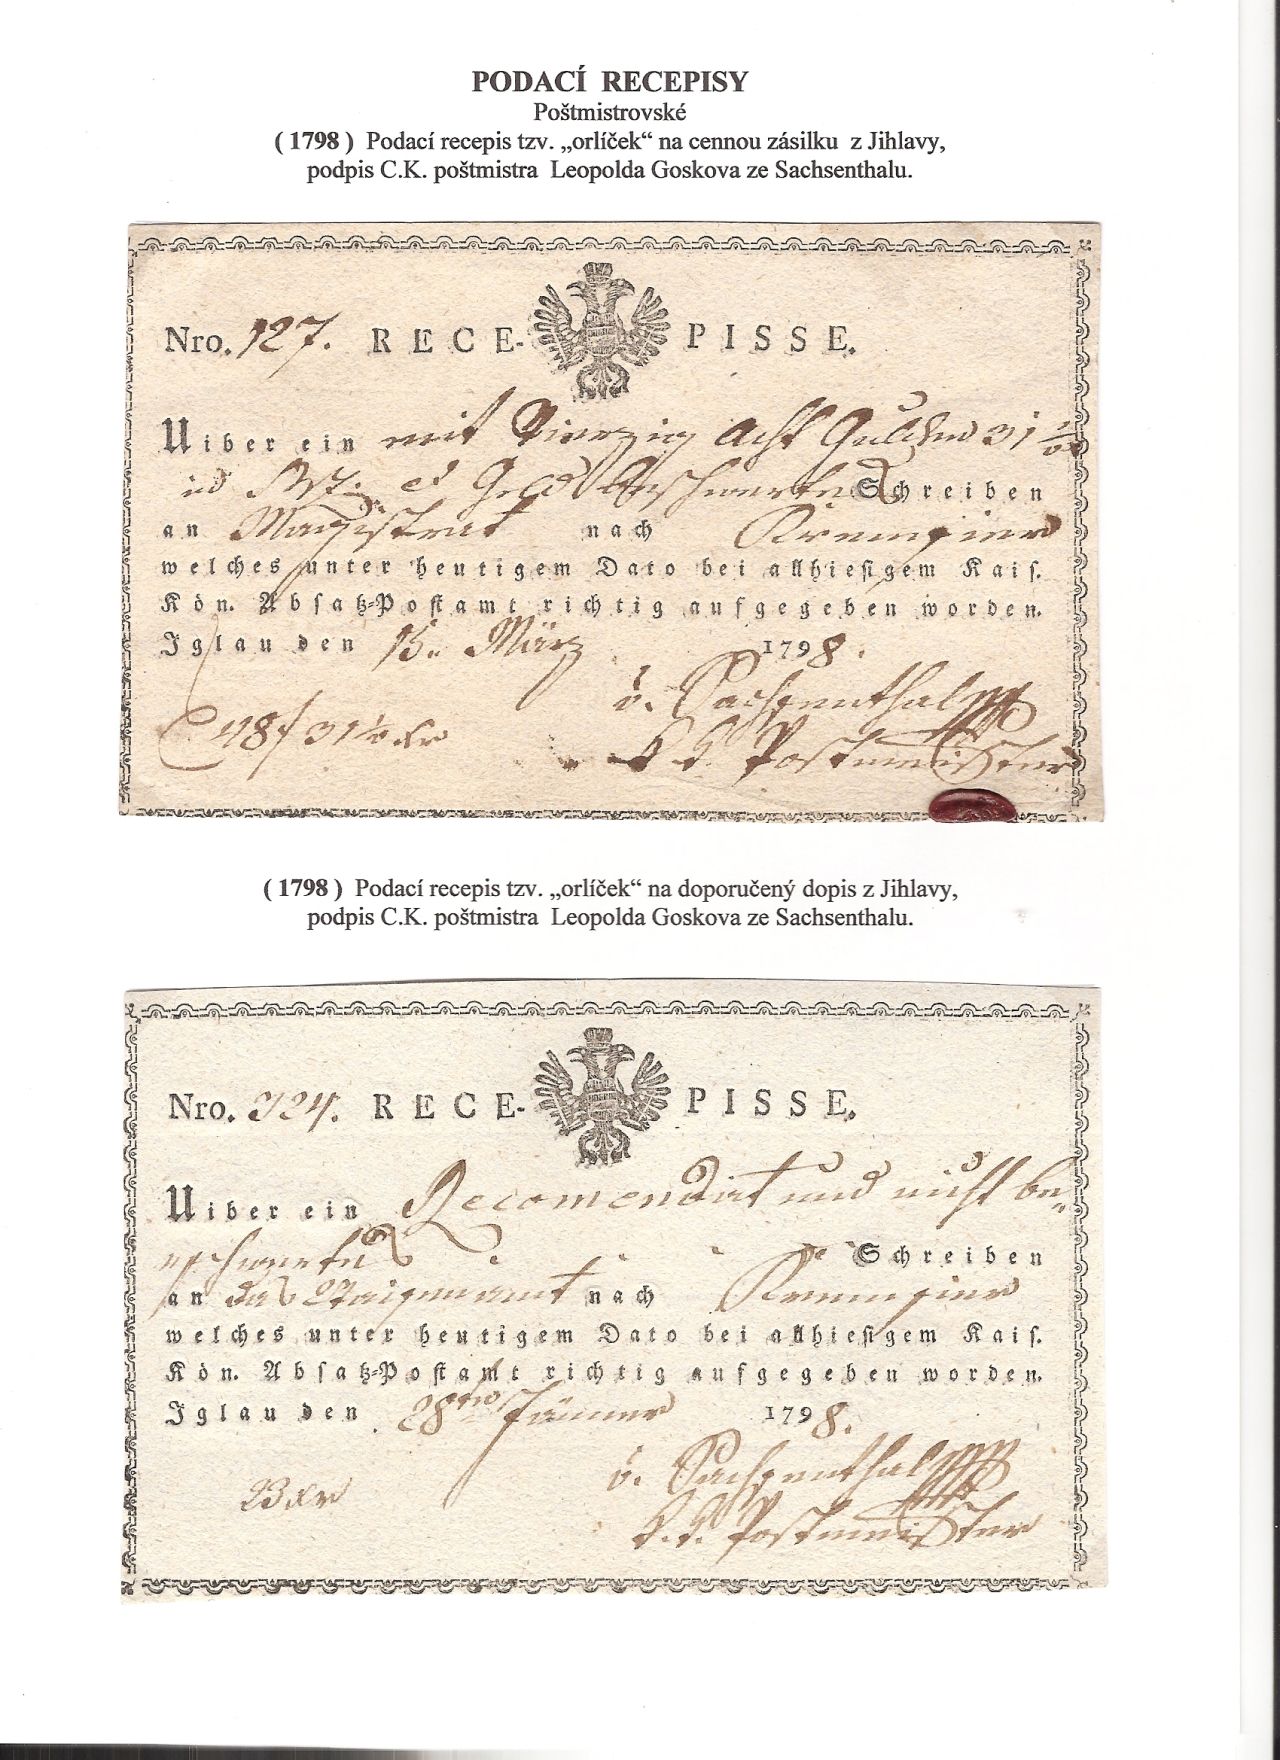 PODACÍ RECEPISY
Poštmistrovské
( 1798 ) Podací recepis tzv. „orlíček“ na cennou zásilku z Jihlavy,
podpis C.K. poštmistra Leopolda Goskova ze Sachsenthalu.
Nro. 127. RECE- PISSE.
Uiber ein mit Vierzig Acht Gulden 31 ½
Geld beschwertes Schreiben
an Magistrat nach Kremsier
welches unter heutigem Dato bei allhiesigem Kais.
Kön. Absatz-Postamt richtig aufgegeben worden.
Iglau den 15. März 1798.
v. Sachsenthal
48 f 31 ½ xr K. K. Postmeister
( 1798 ) Podací recepis tzv. „orlíček“ na doporučený dopis z Jihlavy,
podpis C.K. poštmistra Leopolda Goskova ze Sachsenthalu.
Nro. 224. RECE- PISSE.
Uiber ein Recomendirt und nicht be-
schwertes Schreiben
an das nach Kremsier
welches unter heutigem Dato bei allhiesigem Kais.
Kön. Absatz-Postamt richtig aufgegeben worden.
Iglau den 28ten Jänner 1798.
v. Sachsenthal
23 xr K. K. Postmeister